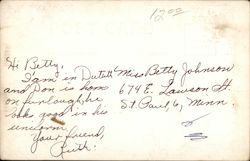 12.00
Hi Betty,
I am in Duluth
and Don is home
on furlough, he
looks good in his
uniform.
Your friend,
Ruth.
Miss Betty Johnson
674 E. Lawson St.
St. Paul, 6, Minn.